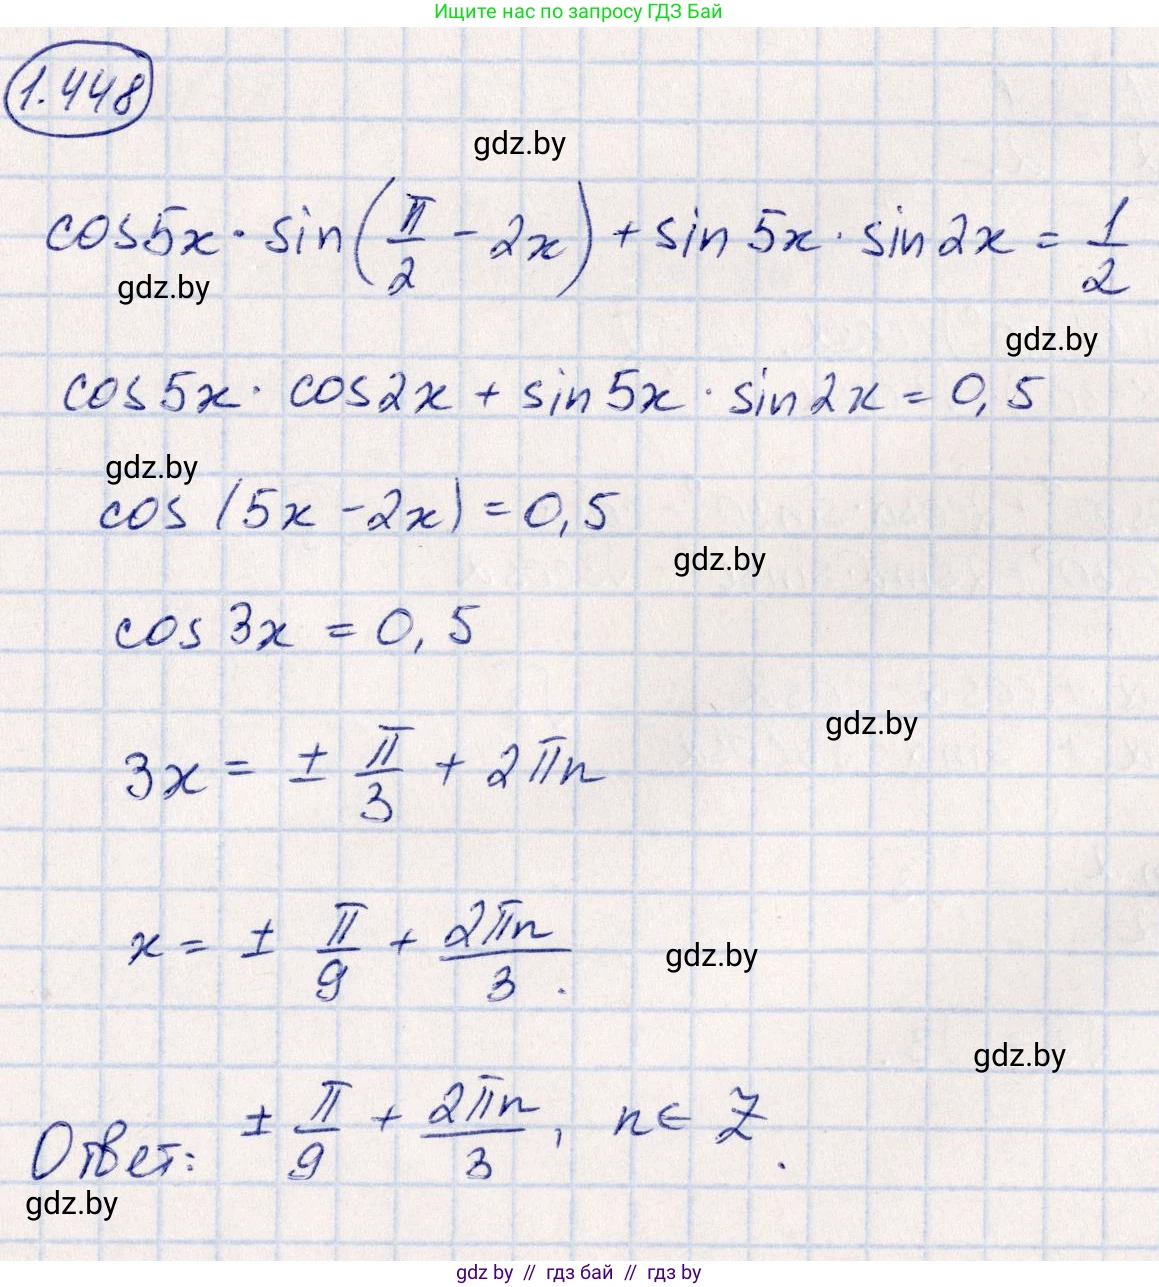 Ищите нас по запросу ГДЗ Бай
1.448
gdz.by
cos5x · sin(π/2 - 2x) + sin5x · sin2x = 1/2
gdz.by
gdz.by
cos5x · cos2x + sin5x · sin2x = 0,5
gdz.by
cos(5x - 2x) = 0,5
gdz.by
cos3x = 0,5
gdz.by
3x = ± π/3 + 2πn
x = ± π/9 + 2πn/3.
gdz.by
gdz.by
Ответ: ± π/9 + 2πn/3, n ∈ Z.
gdz.by
gdz by // гдз бай // гдз by